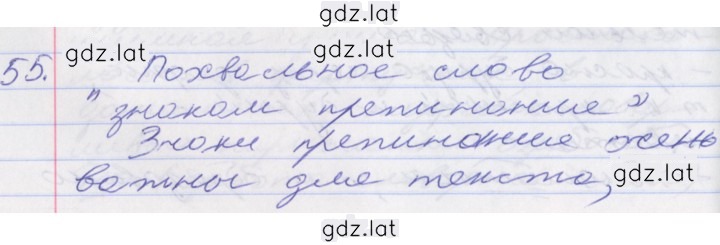 gdz.lat
55. Похвальное слово
gdz.lat gdz.lat
"знаком препинание"
Знаки препинание очень
важны для текста,
gdz.lat
gdz.lat